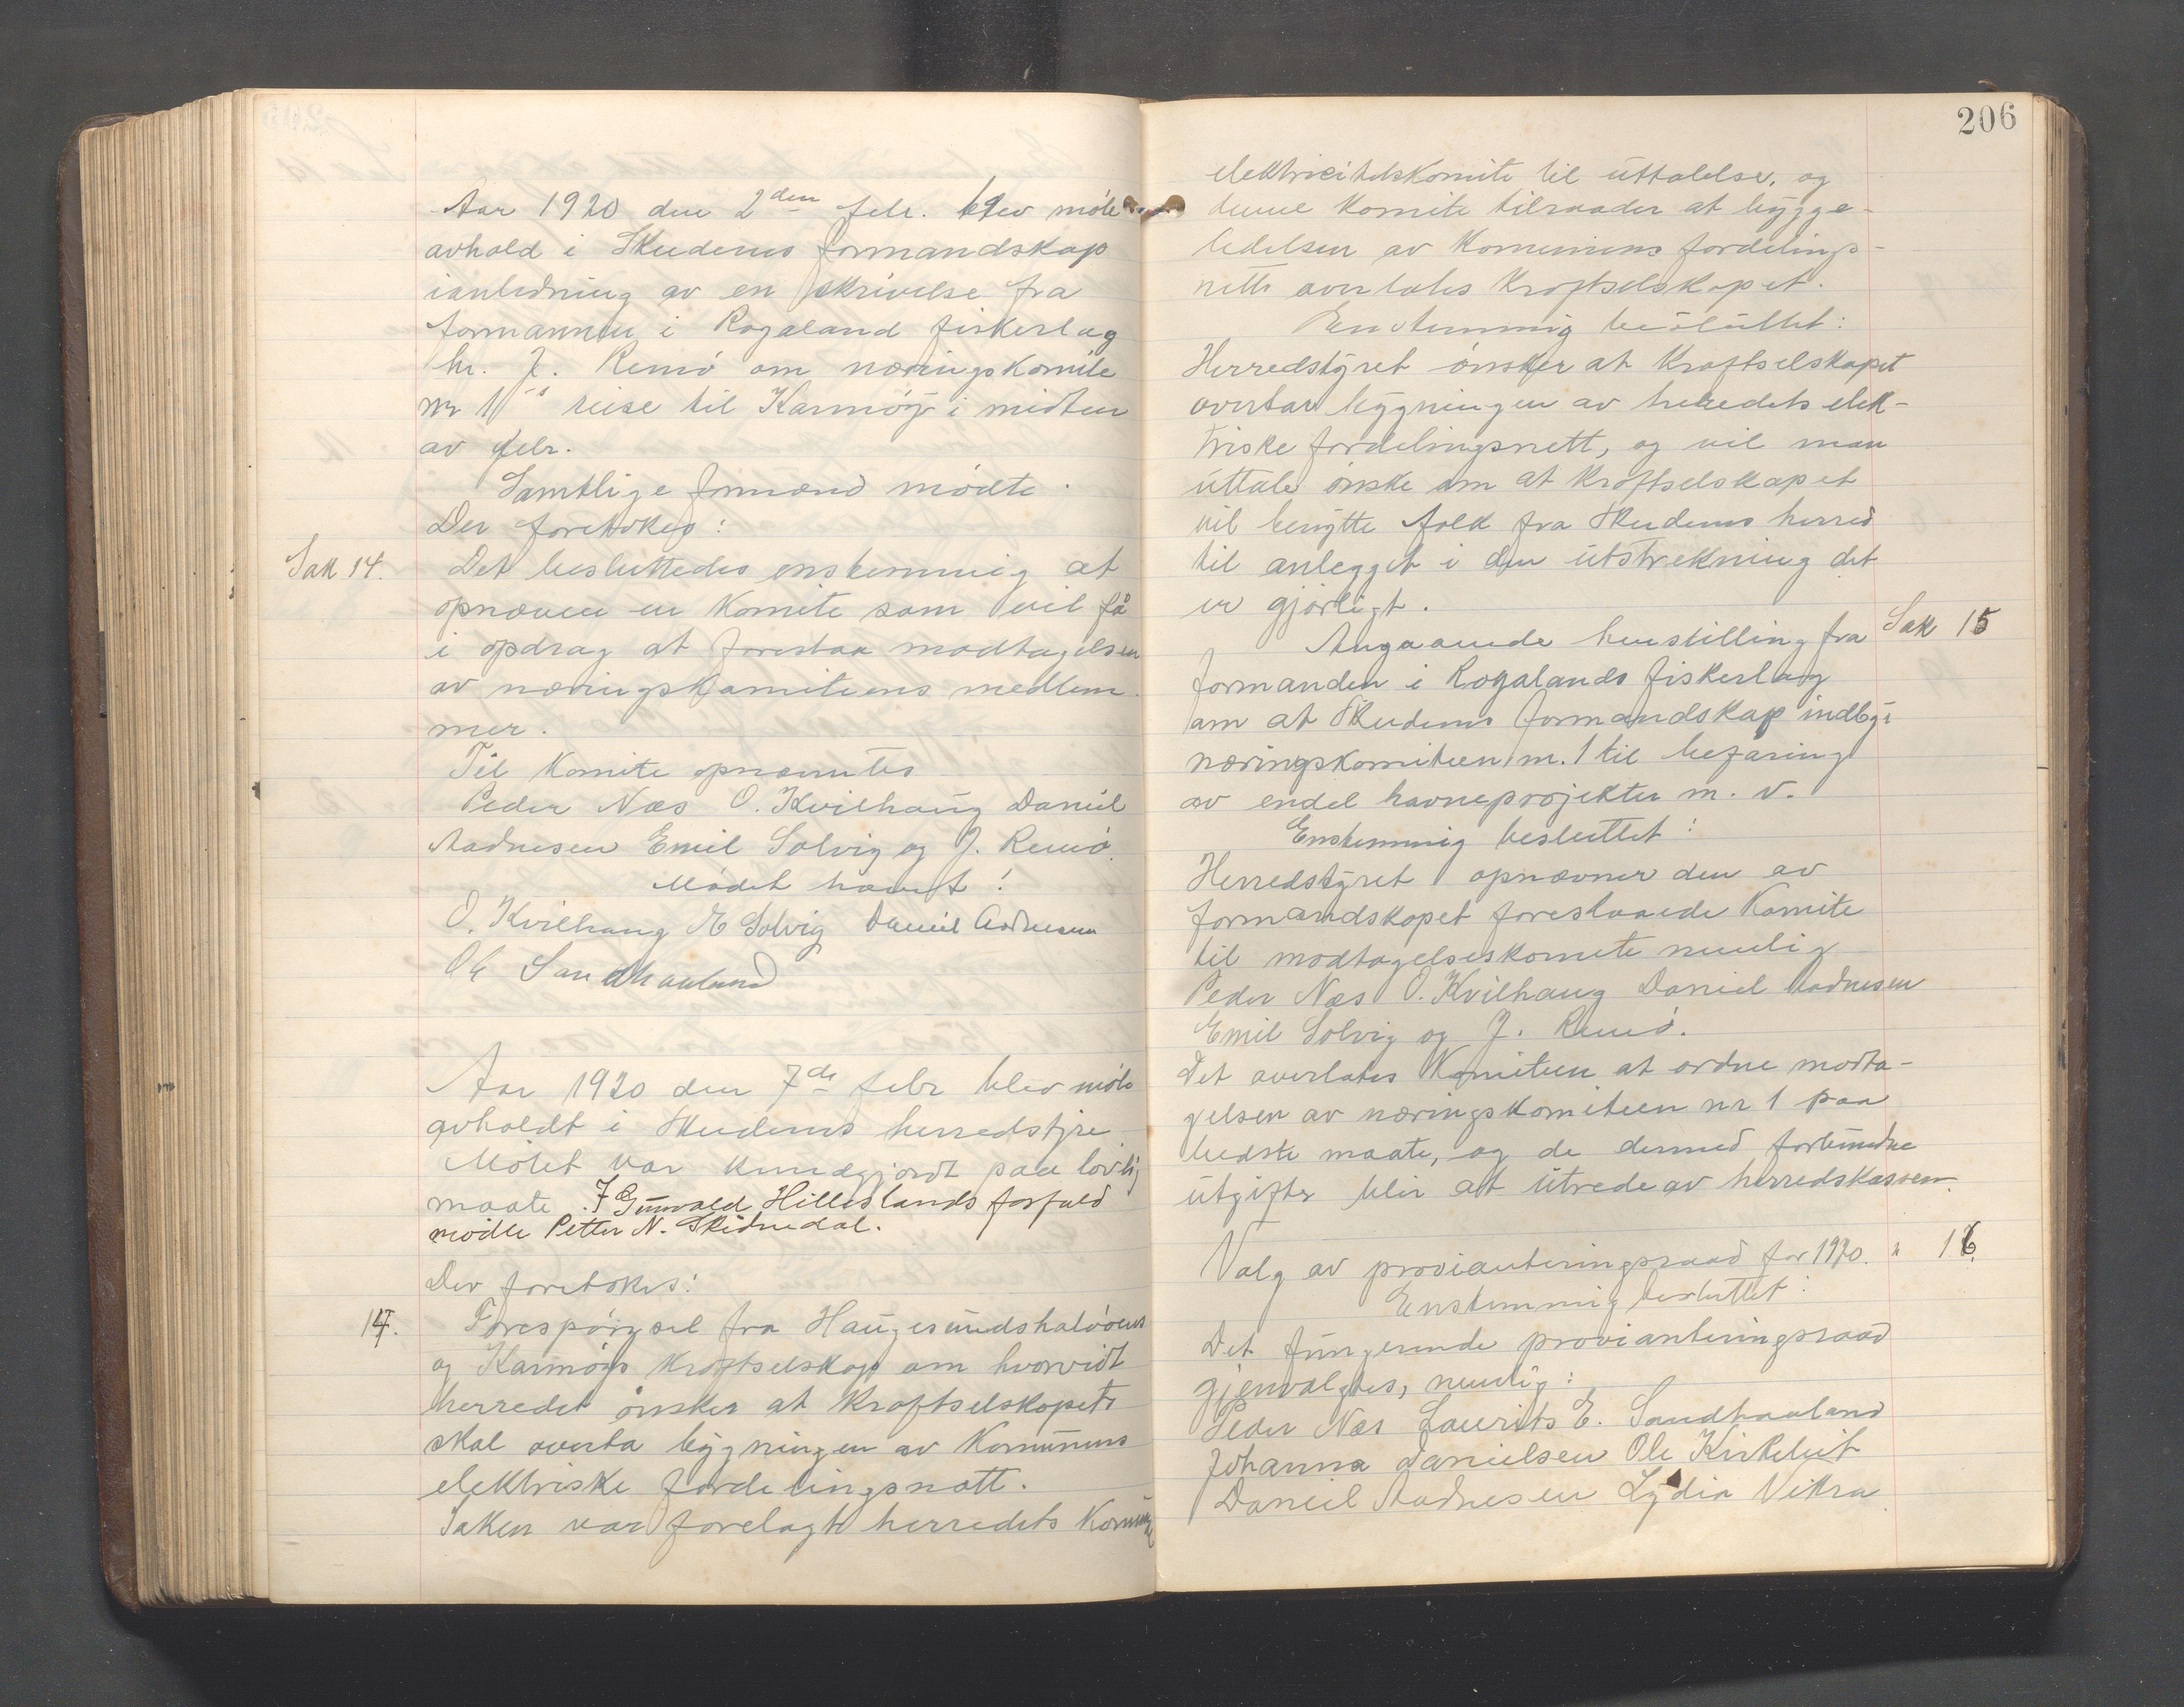 Aar 1920 den 2den febr. blev möte
avhold i Skudenes formandskap
ianledning av en skrivelse fra
formannen i Rogaland fiskerlag
hr. J. Remö om næringskomite
nr 1's reise til Karmöy i midten
av febr.
Samtlige formænd mödte.
Der foretokes:
Sak 14. Det besluttedes enstemmig at
opnævne en komite som vil få
i opdrag at forestaa modtagelsen
av næringskomiteens medlem
mer.
Til komite opnævntes
Peder Næs O. Kvilhaug Daniel
Aadnesen Emil Solvig og J. Remö.
Mödet hævet!
O. Kvilhaug E Solvig Daniel Aadnesen
Ole Sandhaaland
Aar 1920 den 7de febr blev möte
avholdt i Skudenes herredstyre
Mötet var kundgjordt paa lovlig
maate. I Gunvald Hilleslands forfald
mödte Petter N. Skidnedal.
Der foretokes:
14. Forespörgsel fra Haugesundshalvöens
og Karmöys kraftselskap om hvorvidt
herredet önsker at kraftselskapets
skal overta bygningen av komunens
elektriske fordelingsnatt.
Saken var forelagt herredets komune
206
elektricitetskomite til uttalelse, og
denne komite tilraader at bygge-
ledelsen av komunens fordelings-
netts overlates kraftselskapet.
Enstemmig besluttet:
Herredstyret önsker at kraftselskapet
overtar bygningen av herredets elek-
triske fordelingsnett, og vil man
uttale önske om at kraftselskapet
vil benytte folk fra Skudenes herred
til anlegget i den utstrekning det
er gjörligt.
Angaaende henstilling fra Sak 15
formanden i Rogalands fiskerlag
om at Skudenes formandskap indbyr
næringskomiteen nr. 1 til befaring
av endel havneprojekter m. v.
Enstemmig besluttet:
Herredstyret opnævner den av
formandskapet foreslaaede komite
til modtagelseskomite nemlig
Peder Næs O. Kvilhaug Daniel Aadnesen
Emil Solvig og J. Remö.
Det overlates komiteen at ordne modta-
gelsen av næringskomiteen nr 1 paa
bedste maate, og de dermed forbundne
utgifter blir at utrede av herredskassen.
Valg av provianteringsraad for 1920. " 16.
Enstemmig besluttet:
Det fungerende provianteringsraad
gjenvalgtes, nemlig:
Peder Næs Laurits E. Sandhaaland
Johanna Danielsen Ole Kirkeleit
Daniel Aadnesen Lydia Vikra